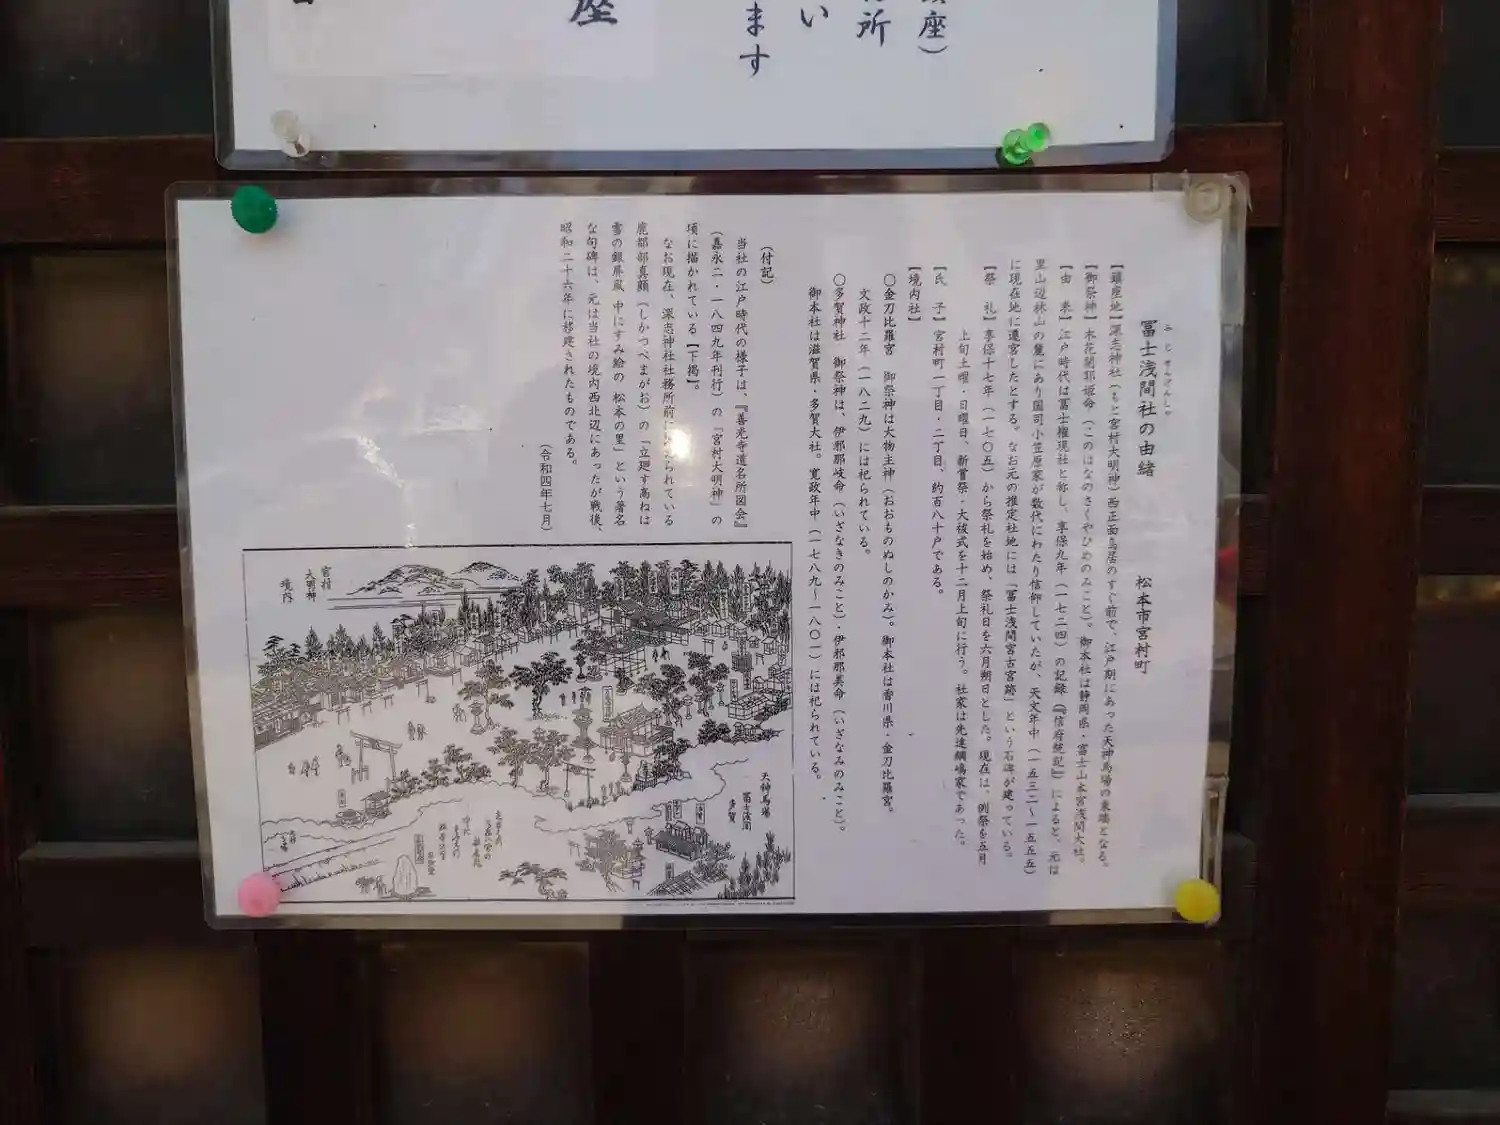 鎮座）
所
い
ます
座
冨士浅間社の由緒
ふじせんげんしゃ
松本市宮村町
【鎮座地】深志神社（もと宮村大明神）西正面鳥居のすぐ前で、江戸期にあった天神馬場の東端となる。
【御祭神】木花開耶姫命（このはなのさくやひめのみこと）。御本社は静岡県・富士山本宮浅間大社。
【由　来】江戸時代は冨士権現社と称し、享保九年（一七二四）の記録『信府統記』によると、元は
里山辺林山の麓にあり国司小笠原家が数代にわたり信仰していたが、天文年中（一五三二～一五五五）
に現在地に遷宮したとする。なお元の推定社地には「冨士浅間宮古宮跡」という石碑が建っている。
【祭　礼】享保十七年（一七〇五）から祭礼を始め、祭礼日を六月朔日とした。現在は、例祭を五月
上旬土曜・日曜日、新嘗祭・大祓式を十二月上旬に行う。社家は先達綱嶋家であった。
【氏　子】宮村町一丁目・二丁目、約百八十戸である。
【境内社】
〇金刀比羅宮　御祭神は大物主神（おおものぬしのかみ）。御本社は香川県・金刀比羅宮。
文政十二年（一八二九）には祀られている。
〇多賀神社　御祭神は、伊邪那岐命（いざなきのみこと）・伊邪那美命（いざなみのみこと）。
御本社は滋賀県・多賀大社。寛政年中（一七八九～一八〇一）には祀られている。
（付記）
当社の江戸時代の様子は、『善光寺道名所図会』
（嘉永二・一八四九年刊行）の「宮村大明神」の
項に描かれている【下掲】。
なお現在、深志神社社務所前に られている
鹿都部真顔（しかつべまがお）の「立廻す高ねは
雪の銀屏風 中にすみ絵の 松本の里」という著名
な句碑は、元は当社の境内西北辺にあったが戦後、
昭和二十六年に移建されたものである。
（令和四年七月）
宮村
大明神
境内
天神馬場
冨士浅間
多賀